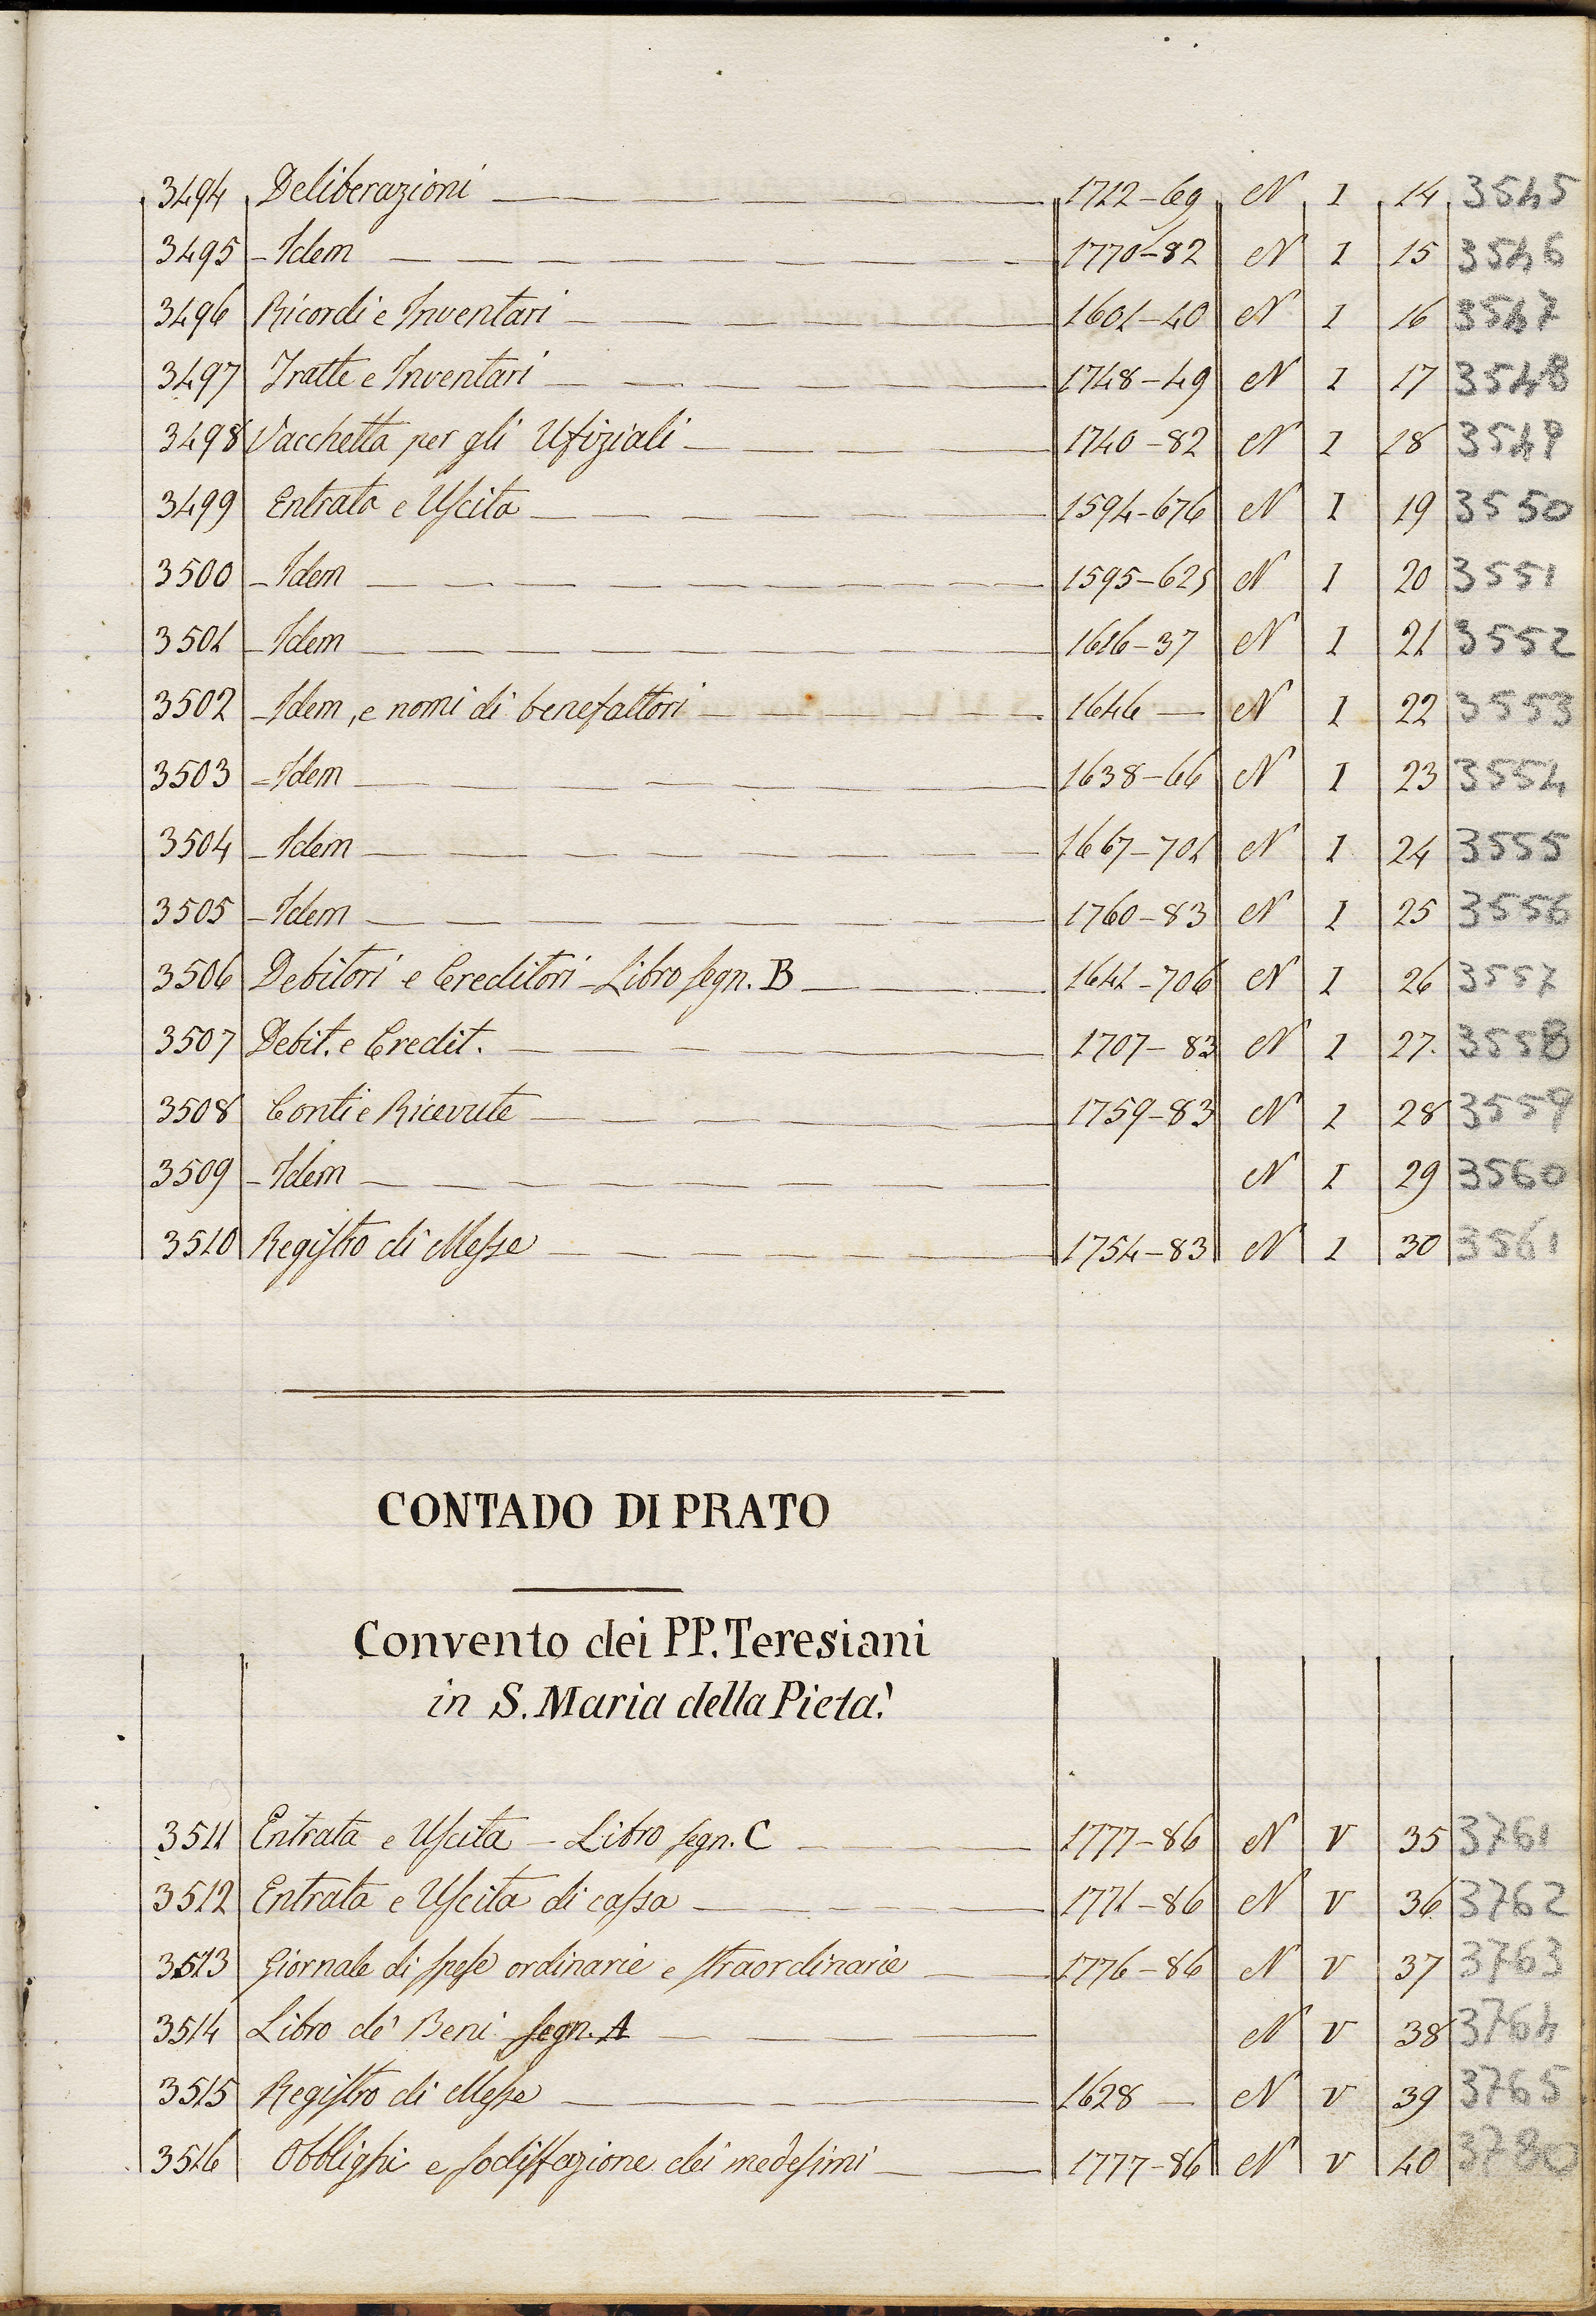 3494 Deliberazioni 1712-69 N I 14 3545
3495 - Idem 1770-82 N I 15 3546
3496 Ricordi e Inventari 1601-40 N I 16 3547
3497 Tratte e Inventari 1748-49 N I 17 3548
3498 Vacchetta per gli Ufiziali 1740-82 N I 18 3549
3499 Entrata e Uscita 1594-676 N I 19 3550
3500 - Idem 1595-625 N I 20 3551
3501 - Idem 1616-37 N I 21 3552
3502 - Idem, e nomi di benefattori 1646 — N I 22 3553
3503 - Idem 1638-66 N I 23 3554
3504 - Idem 1667-701 N I 24 3555
3505 - Idem 1760-83 N I 25 3556
3506 Debitori e Creditori - Libro segn. B 1641-706 N I 26 3557
3507 Debit. e Credit. 1707-83 N I 27. 3558
3508 Conti e Ricevute 1759-83 N I 28 3559
3509 - Idem N I 29 3560
3510 Registro di Messe 1754-83 N I 30 3561
CONTADO DI PRATO
Convento dei PP. Teresiani
in S. Maria della Pietà.
3511 Entrata e Uscita - Libro segn. C 1777-86 N V 35 3761
3512 Entrata e Uscita di cassa 1771-86 N V 36 3762
3513 Giornale di spese ordinarie e straordinarie 1776-86 N V 37 3763
3514 Libro de' Beni segn. A N V 38 3764
3515 Registro di Messe 1628 — N V 39 3765
3516 Obblighi e sodisfazione dei medesimi 1777-86 N V 40 3780